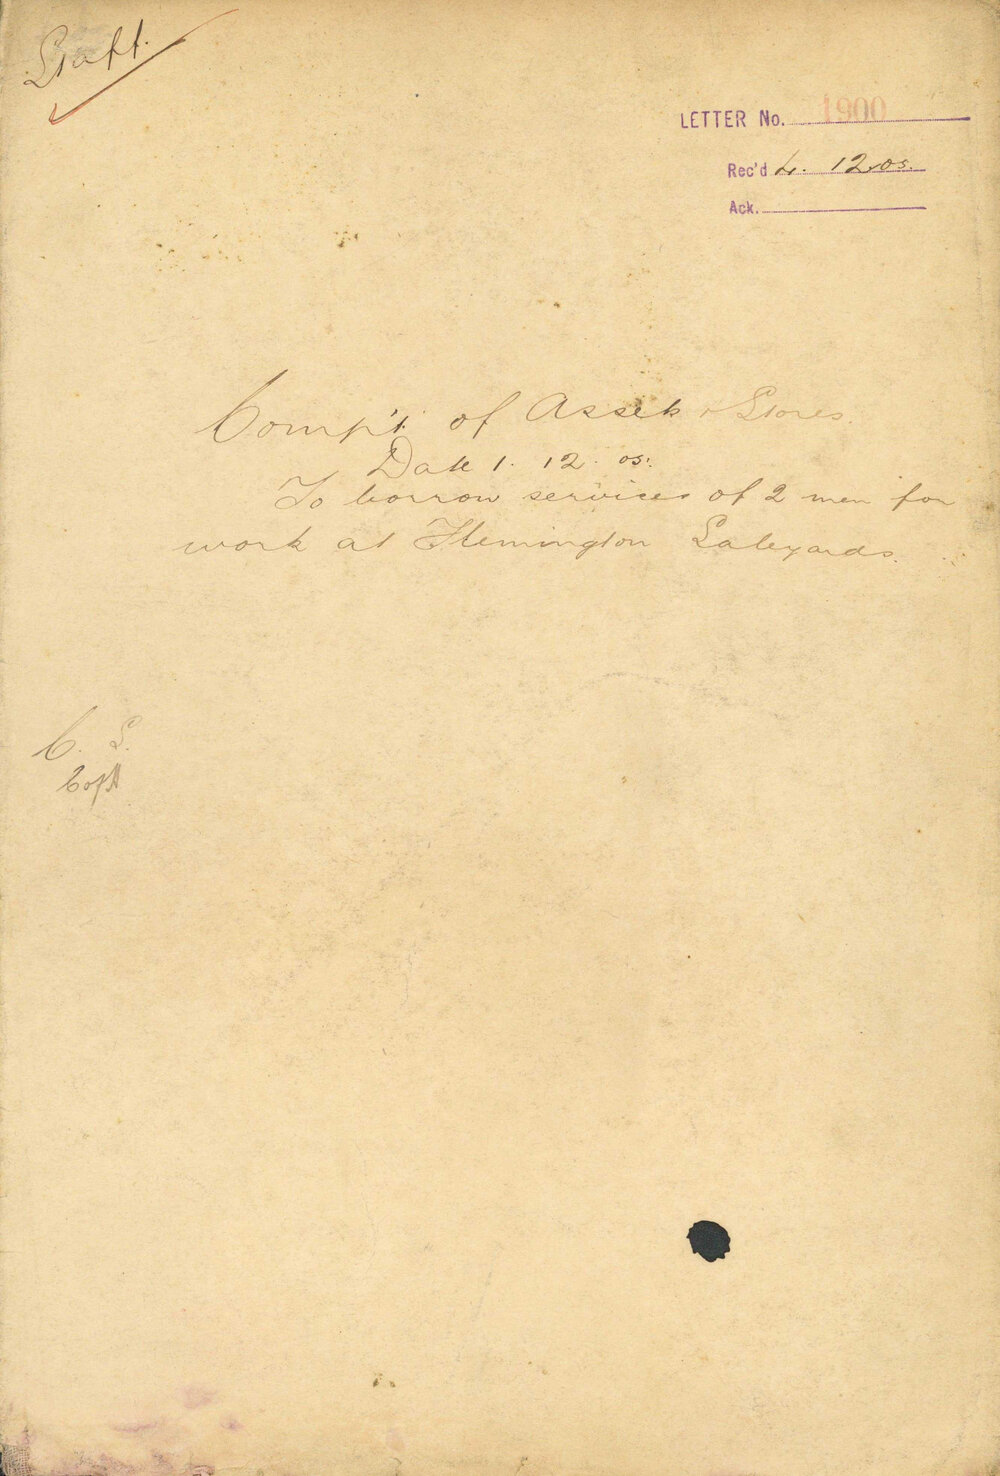 Staff.
LETTER No. 1900
Rec'd 4. 12.05.
Ack.
Comp't of Assets & Stores.
Date 1. 12. 05.
To borrow services of 2 men for
work at Flemington Saleyards.
C. S.